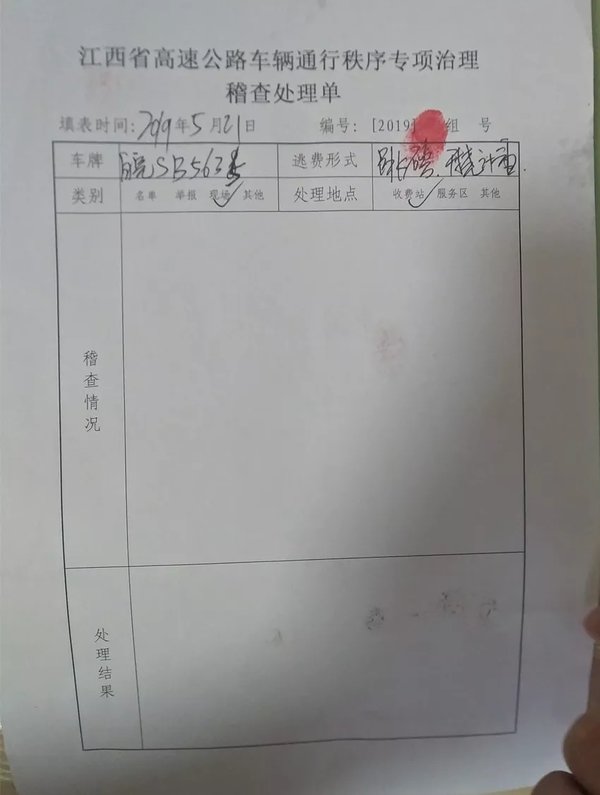 江西省高速公路车辆通行秩序专项治理
稽查处理单
填表时间: 2019年5月21日 编号: [2019] 组 号
车牌 皖SB563 逃费形式 跳磅,
类别 名单 举报 现场 其他 处理地点 收费站 服务区 其他
稽查情况
处理结果